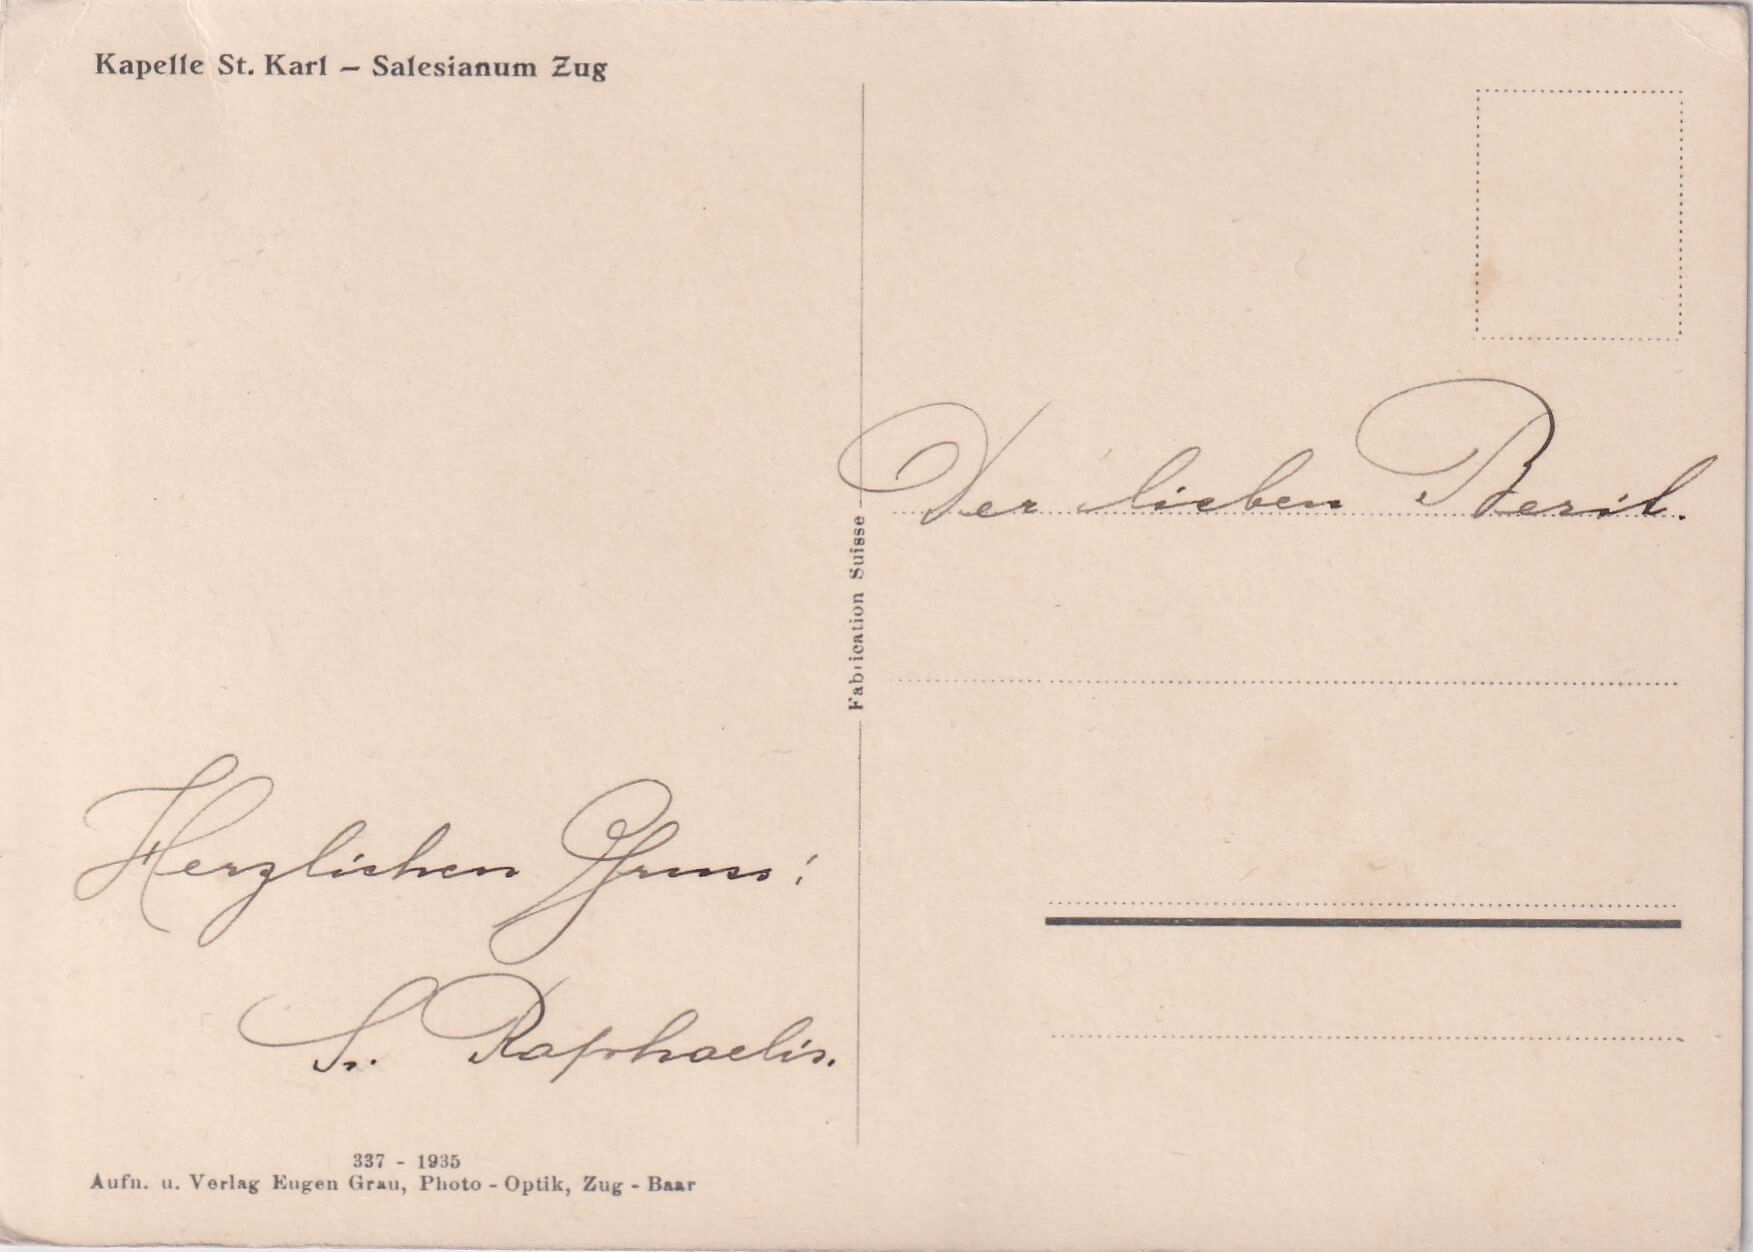 Kapelle St. Karl – Salesianum Zug
Herzlichen Gruss!
Sr. Raphaelis.
337 - 1935
Aufn. u. Verlag Eugen Grau, Photo - Optik, Zug - Baar
Fabrication Suisse
Der lieben